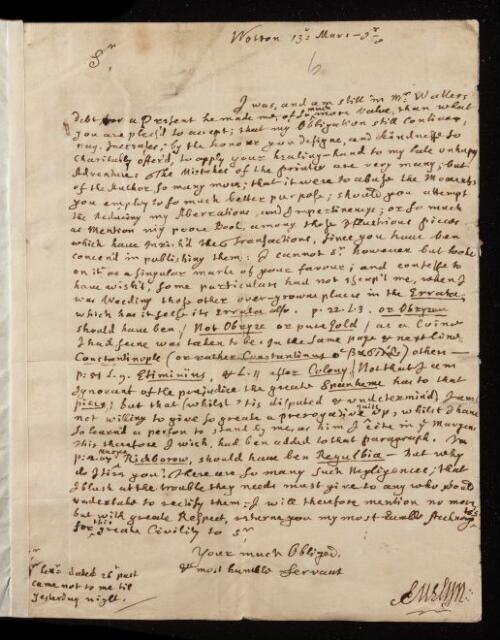 Wotton 13: Mar: -
Sr
I was, and am still in Mr Wallers
debt, for a Present he made me, of so much more value, than what
you are pleas'd to accept; that my Obligation still continues,
nay, Increases, by the honour you designe, and kindnesse so
charitably offer'd, to apply your healing-hand to my late unhapy
Adventure. The Mistakes of the printer are very many; but
of the Author so many more; that it were to abuse the Moments
you employ to so much better purpose; should you attempt
the Reducing my Aberrations, and Impertinences; or so much
as Mention my poore Book, among those Illustrious pieces
which have Inrich'd the Transactions, since you have ben
concern'd in publishing them: I cannot Sr however but looke
on it as a singular marke of your favour; and confesse to
have wish'd, some particulars had not escap'd me, when I
was Weeding those other over-growne places in the Errata,
which has it selfe its Errata also. p. 22. l. 3. or Obryzum
should have ben, Not Obryze or pure Gold / as a Coine
I had seene was taken to be. In the same page & next line
Constantinople (or rather Constantinus) others —
p: l. 9. Etiminius, & l. 11 after Colony / Not that I am
Ignorant of the prejudice the greate Spanheme has to that
piece; but that (whilst 'tis disputed & undetermin'd) I am
not willing to give so greate a prerogative up, whilst I have
so learn'd a person to stand by me, as him I cite in ye Margin,
this therefore I wish, had ben added to that paragraph. In
p: Richborow, should have ben Regulbia — but why
do I tire you? There are so many such Negligences, that
I blush at the trouble they needs must give to any who would
undertake to rectifie them: I will therefore mention no more
but with greate Respect, returne you my most humble
for this greate Civility to Sr
Your much Obliged,
& most humble Servant
Evelyn:
dated 26 past
came not to me til
yesterday night.